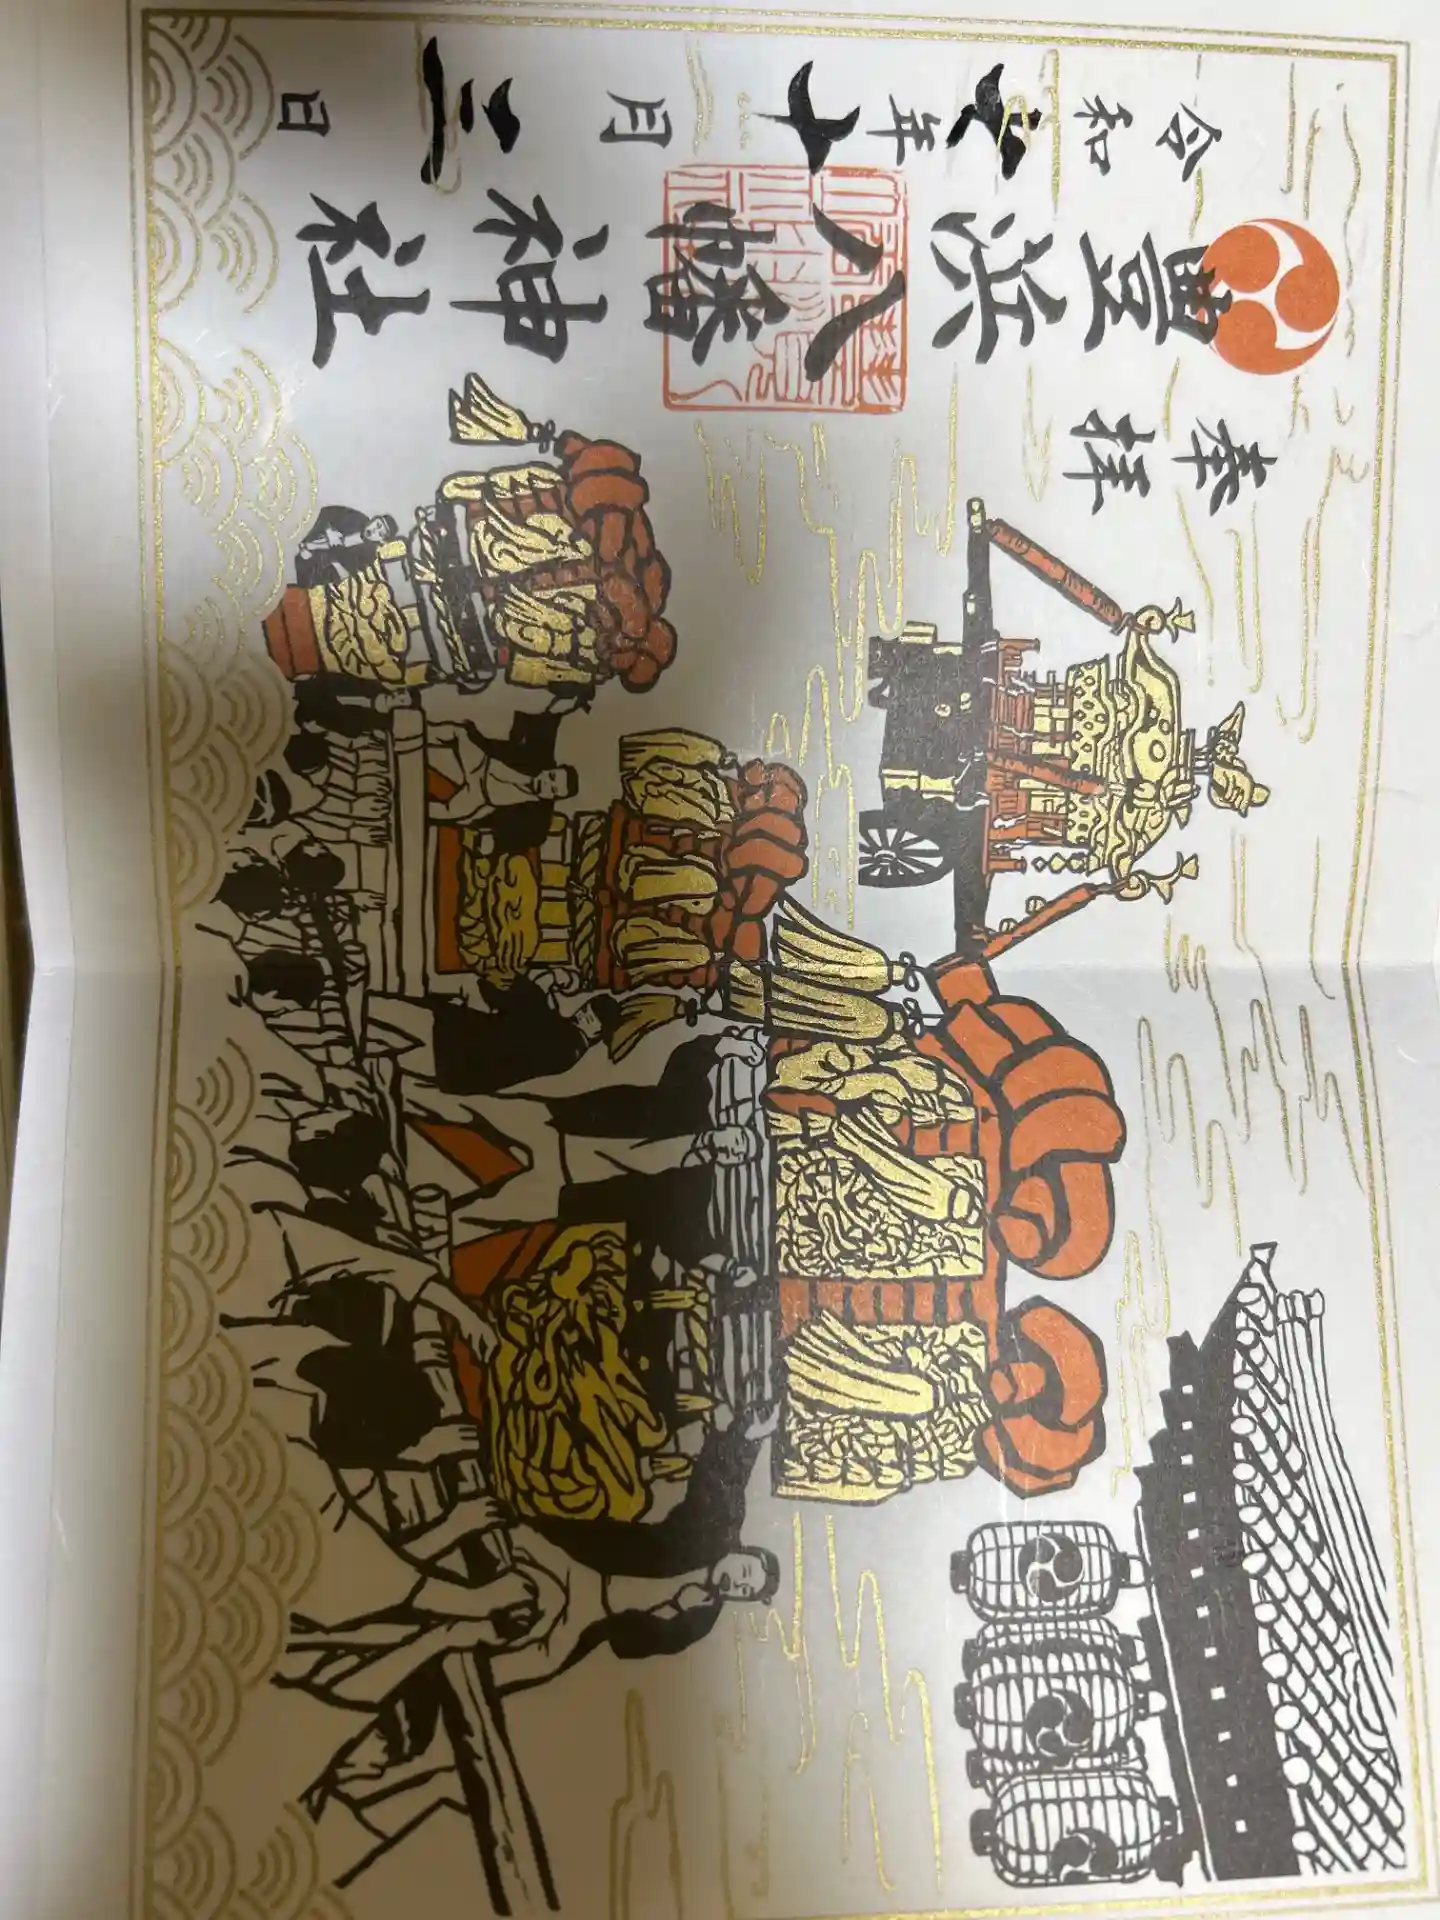 奉拝
豊浜八幡神社
令和六年十月三日